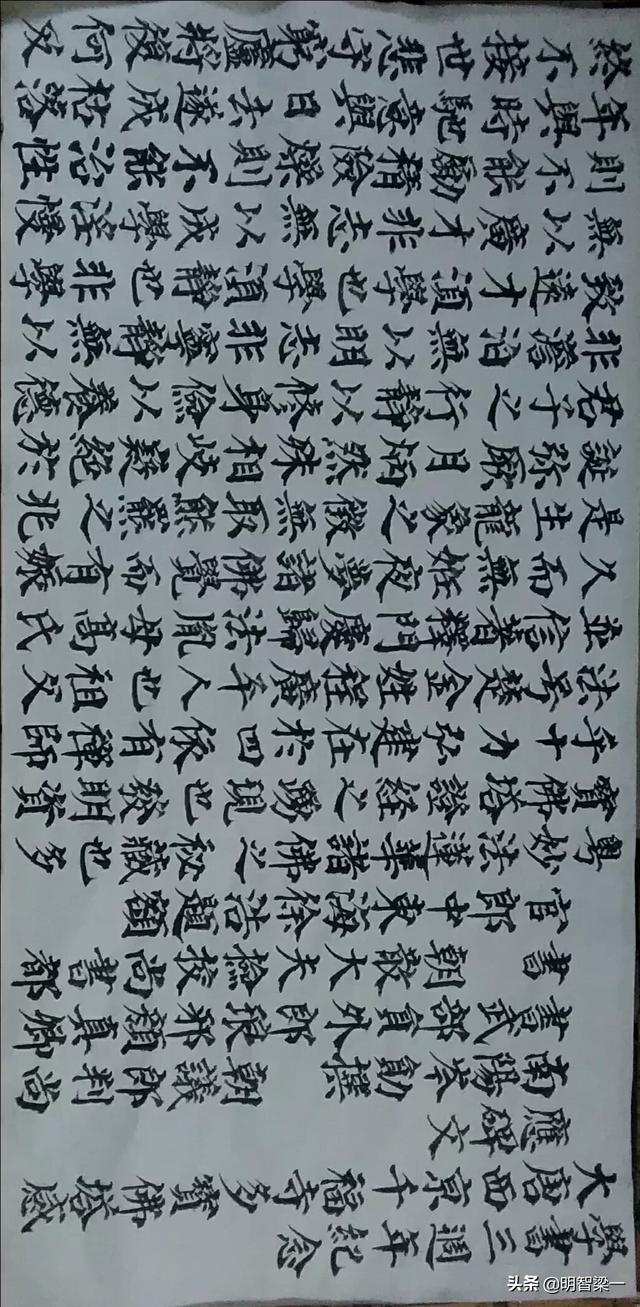 學書三週年紀念
大唐西京千福寺多寶佛塔感
應碑文
南陽岑勛撰 朝議郎判尚
書武部員外郎琅邪顏真卿
書 朝散大夫檢校尚書都
官郎中東海徐浩題額
粵妙法蓮華諸佛之秘藏也多
寶佛塔證經之踴現也發明資
乎十力弘建在於四依有禪師
法号楚金姓程廣平人也祖父
並信著釋門慶歸法胤母高氏
久而無妊夜夢諸佛覺而有娠
是生龍象之徵無取熊羆之兆
誕弥厥月炳然殊相岐嶷絕於
君子之行靜以修身儉以養德
非澹泊無以明志非寧靜無以
致遠才須學也學須靜也非學
無以廣才非志無以成學淫慢
則不能勵精險燥則不能治性
年與時馳意與日去遂成枯落
終不接世悲守窮廬將復何及
头条 @明智梁一